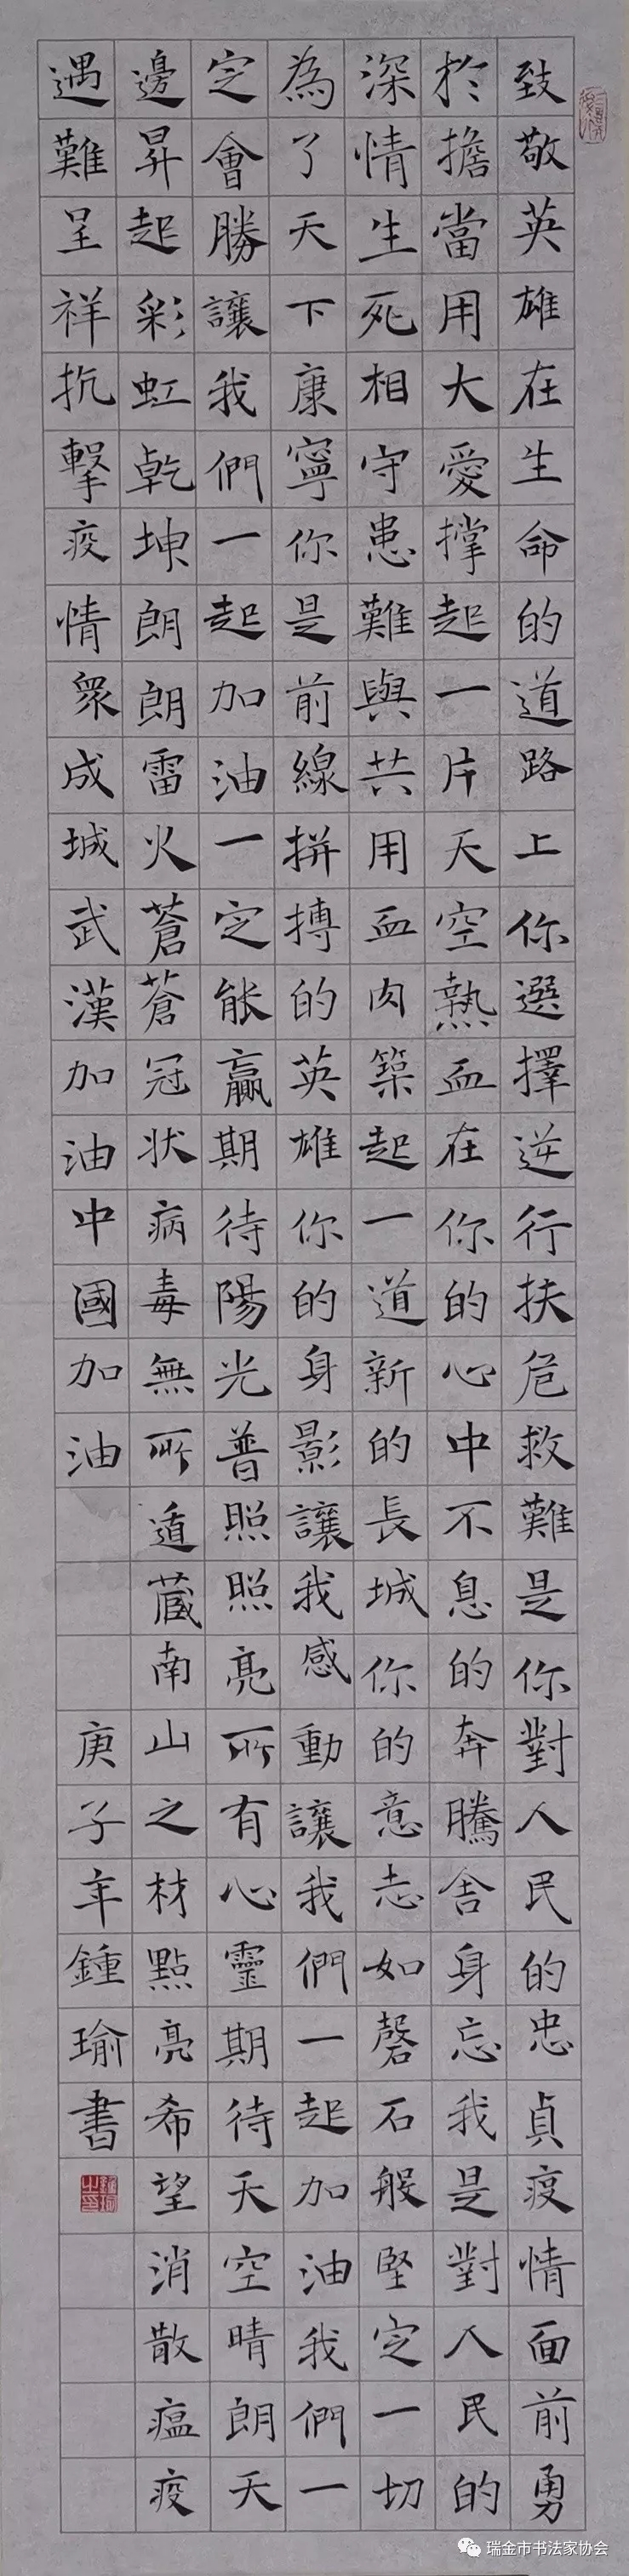 致敬英雄在生命的道路上你選擇逆行扶危救難是你對人民的忠貞疫情面前勇
於擔當用大愛撑起一片天空熱血在你的心中不息的奔騰舍身忘我是對人民的
深情生死相守患難與共用血肉築起一道新的長城你的意志如磬石般堅定一切
為了天下康寧你是前線拼搏的英雄你的身影讓我感動讓我們一起加油我們一
定會勝讓我們一起加油一定能贏期待陽光普照照亮所有心靈期待天空晴朗天
邊昇起彩虹乾坤朗朗雷火蒼蒼冠状病毒無所遁蔵南山之材點亮希望消散瘟疫
遇難呈祥抗擊疫情衆成城武漢加油中國加油
庚子年鍾瑜書
瑞金市书法家协会